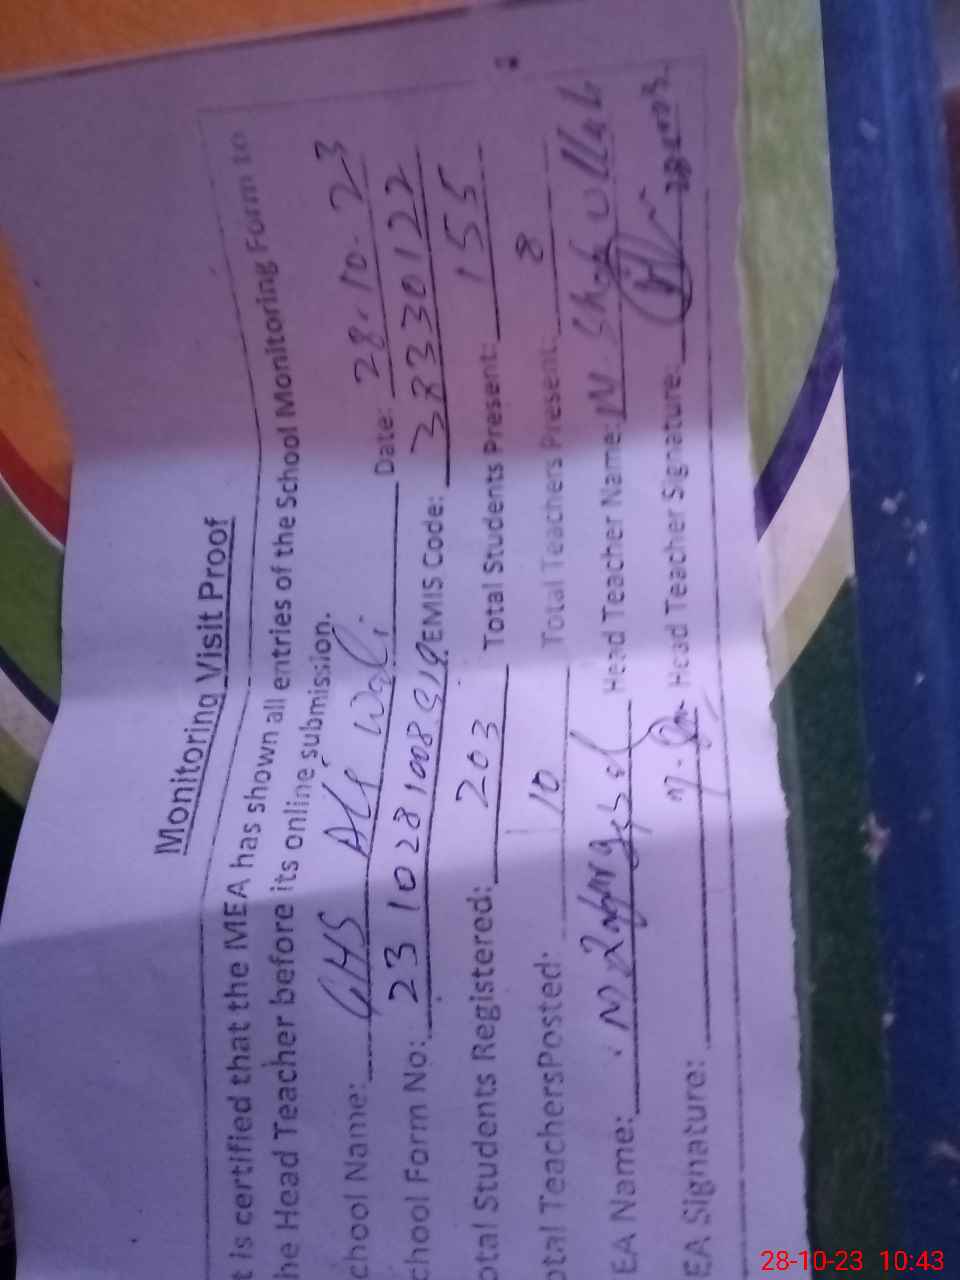 Monitoring Visit Proof
t is certified that the MEA has shown all entries of the School Monitoring Form to
he Head Teacher before its online submission.
chool Name: GHS Ali Wali Date: 28.10.23
chool Form No: EMIS Code: 38330122
otal Students Registered: 203 Total Students Present: 155
otal TeachersPosted: 10 Total Teachers Present: 8
EA Name: Head Teacher Name: M. Shah
EA Signature: Head Teacher Signature:
28-10-23 10:43